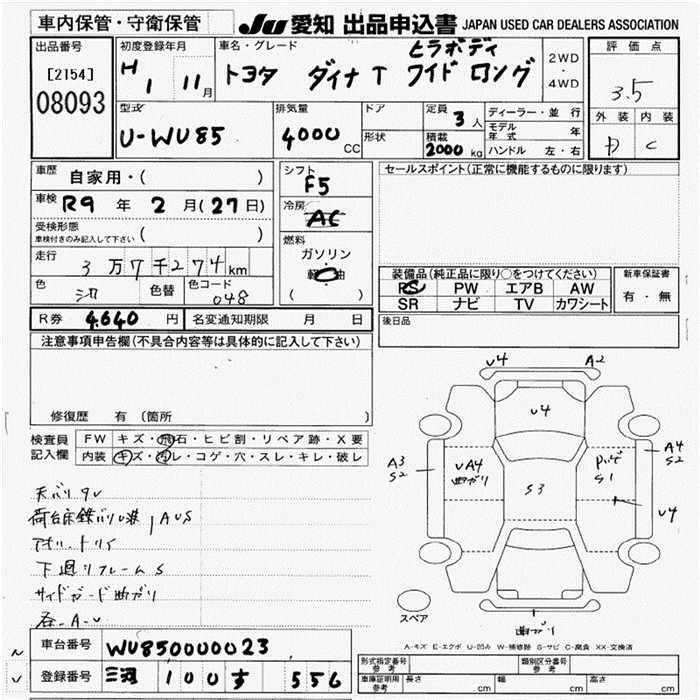 車内保管・守衛保管
JU 愛知 出品申込書 JAPAN USED CAR DEALERS ASSOCIATION
出品番号
[2154]
08093
初度登録年月
H 1 11月
車名・グレード
ヒラボディ
トヨタ ダイナT ワイド ロング
2WD
・
4WD
評価点
3.5
外装 内装
D C
型式
U-WU85
排気量
4000 CC
ドア
形状
定員 3 人
積載 2000 kg
ディーラー・並行
モデル年式 年
ハンドル 左・右
車歴 自家用・( )
車検 R9 年 2 月(27日)
受検形態
車検付きのみ記入して下さい ( )
走行 3万7千274km
色 シロ 色替 色コード 048
シフト
F5
冷房
AC
燃料
ガソリン
・
軽油
( )
セールスポイント(正常に機能するものに限ります)
装備品(純正品に限り○をつけてください)
PS PW エアB AW
SR ナビ TV カワシート
新車保証書
有・無
R券 4,640 円 名変通知期限 月 日
後日品
注意事項申告欄(不具合内容等は具体的に記入して下さい)
修復歴 有(箇所 )
検査員記入欄
FW キズ・飛石・ヒビ割・リペア跡・X要
内装 キズ・汚レ・コゲ・穴・スレ・キレ・破レ
下廻リフレームS
サイドガード曲ガリ
U4 A2
U4
A3
S2
UA4
曲ガリ
S3
S1
A4
S2
U4
曲ガリ
スペア
A-キズ E-エクボ U-凹み W-補修跡 S-サビ C-腐食 XX-交換済
車台番号 WU850000023
登録番号 三河 100 す 556
形式指定番号 参考
類別区分番号 参考
車庫証明用 参考 長さ cm 幅 cm 高さ cm